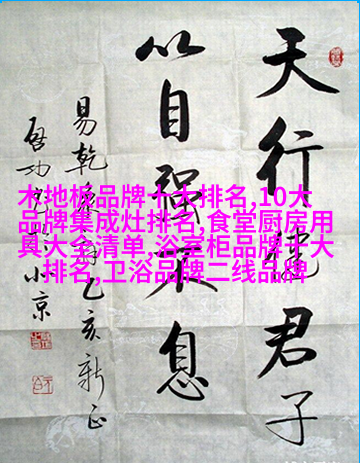 天行健君子
以自強不息
易乾 乙亥新正
啓功 小京
木地板品牌十大排名,10大
品牌集成灶排名,食堂厨房用
具大全清单,浴室柜品牌十大
排名,卫浴品牌二线品牌